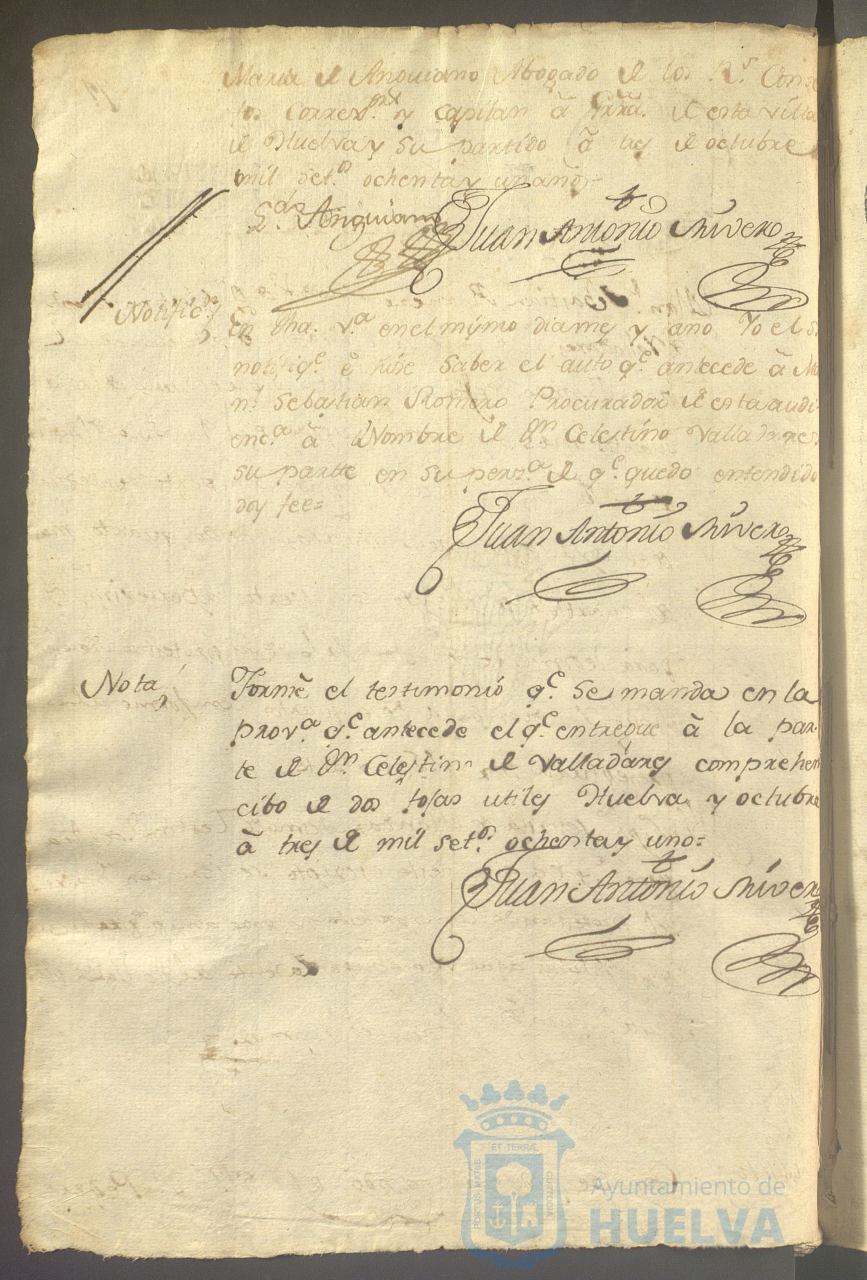 Maria de Anguiano Abogado de los R.s Conse
jos Correx.or y capitan â Grrâ. de esta villa
de Huelva y su partido â tres de octubre
mil set.s ochenta y un años=
L.do Anguiano
Juan Antonio Rivero
Notific.n
En dha. v.a en el mysmo dia mes y año Yo el s.
notifiq.e è hise saber el auto q.e antecede â Ma
n.l Sebastian Romero Procurador de esta audi
enc.a â Nombre de D.n Celestino Valladares
su parte en su perz.a de q.e quedo entendido
doy fee=
Juan Antonio Rivero
Nota
Formè el testimonio q.e se manda en la
prov.a q.e antecede el q.e entregue â la par
te de D.n Celestino de Valladares comprehen
cibo de dos fojas utiles Huelva y octubre
â tres de mil set.s ochenta y uno=
Juan Antonio Rivero
ET TERRÆ
PORTUS MARIS
CUSTODIA
Ayuntamiento de
HUELVA